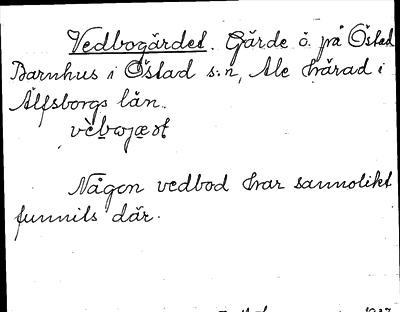 Vedbogärdet. Gärde ö. på Östad
Barnhus i Östad s:n, Ale härad i
Älfsborgs län.
Någon vedbod har sannolikt
funnits där.